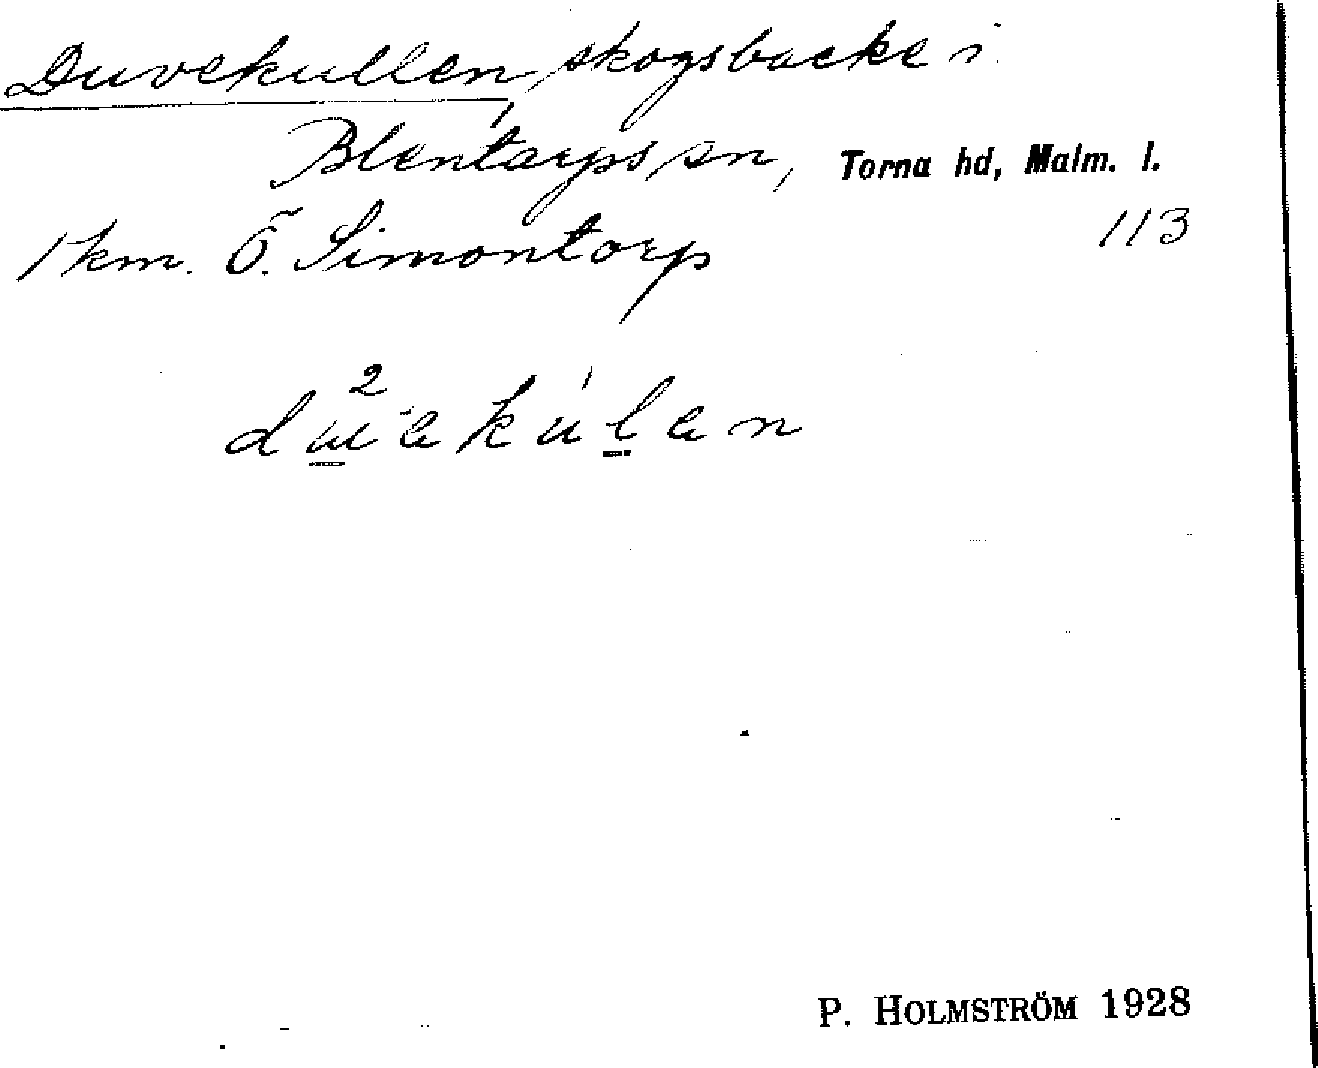 Duvekullen, skogsbacke i
Blentarps sn, Torna hd, Malm. l.
1 km. Ö. Simontorp 113
P. HOLMSTRÖM 1928